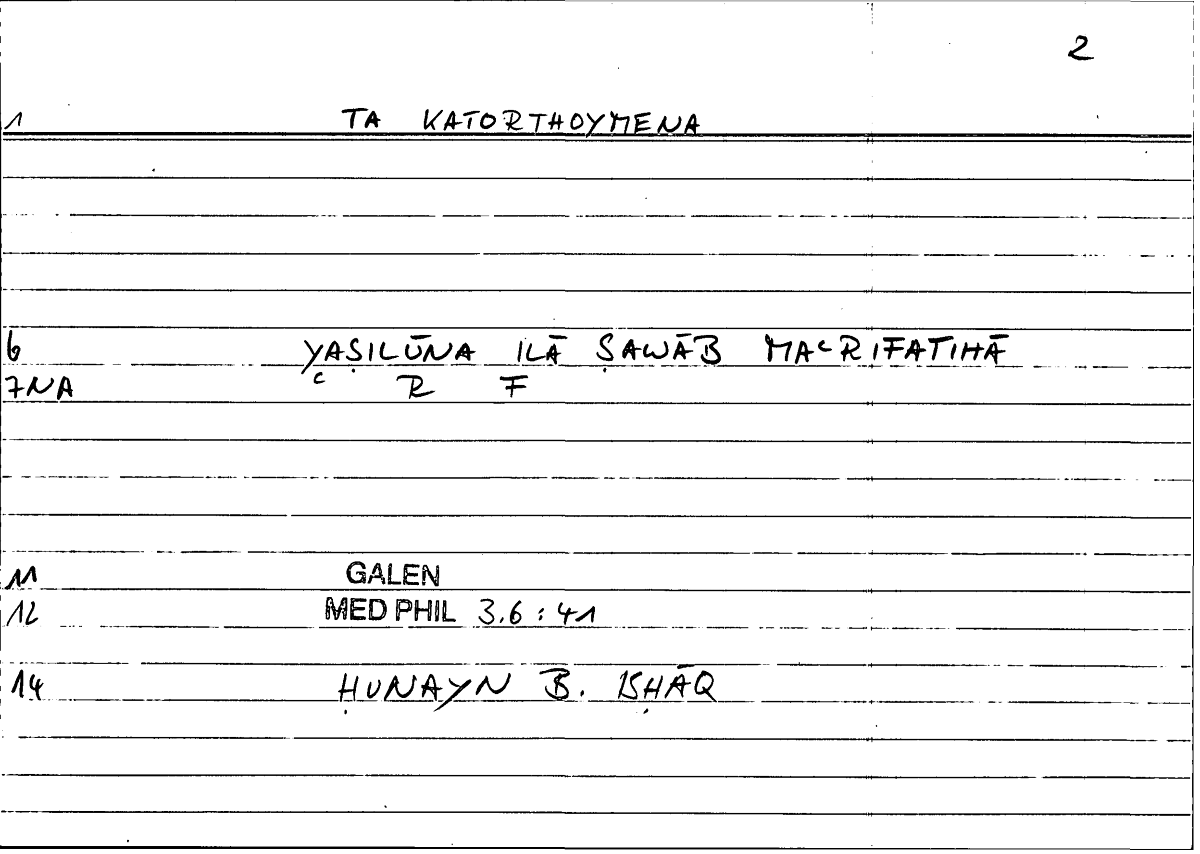 2
1 TA KATORTHOYMENA
6 YAṢILŪNA ILĀ ṢAWĀB MAᶜRIFATIHĀ
7NA ᶜ R F
11 GALEN
12 MED PHIL 3.6 : 41
14 ḤUNAYN B. ISḤĀQ